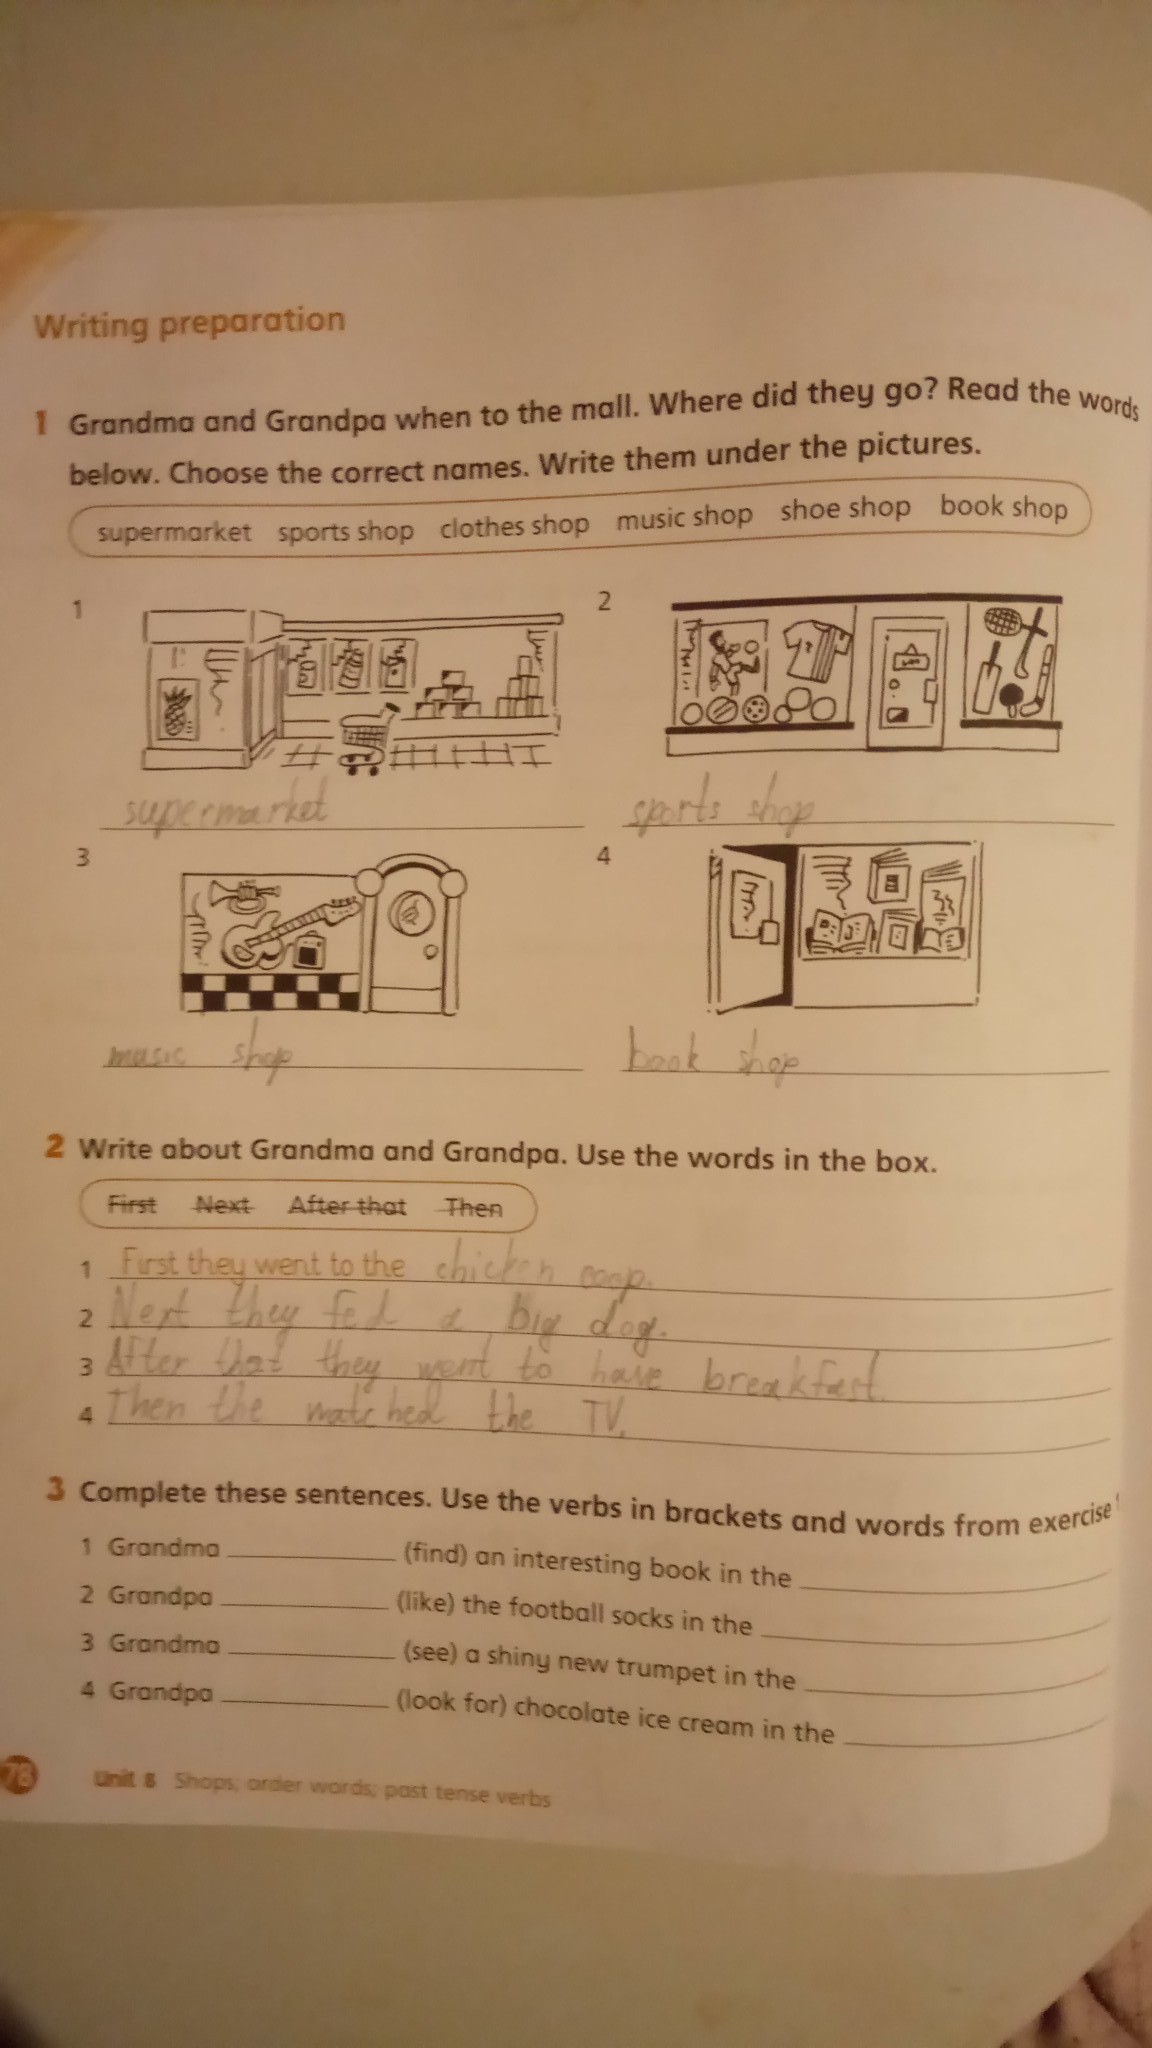 Writing preparation
1 Grandma and Grandpa when to the mall. Where did they go? Read the words
below. Choose the correct names. Write them under the pictures.
supermarket sports shop clothes shop music shop shoe shop book shop
1
2
supermarket
sports shop
3
4
music shop
book shop
2 Write about Grandma and Grandpa. Use the words in the box.
First Next After that Then
1 First they went to the chicken coop.
2 Next they fed a big dog.
3 After that they went to have breakfast.
4 Then the watched the TV.
3 Complete these sentences. Use the verbs in brackets and words from exercise
1 Grandma (find) an interesting book in the
2 Grandpa (like) the football socks in the
3 Grandma (see) a shiny new trumpet in the
4 Grandpa (look for) chocolate ice cream in the
78 Unit 8 Shops; order words; past tense verbs